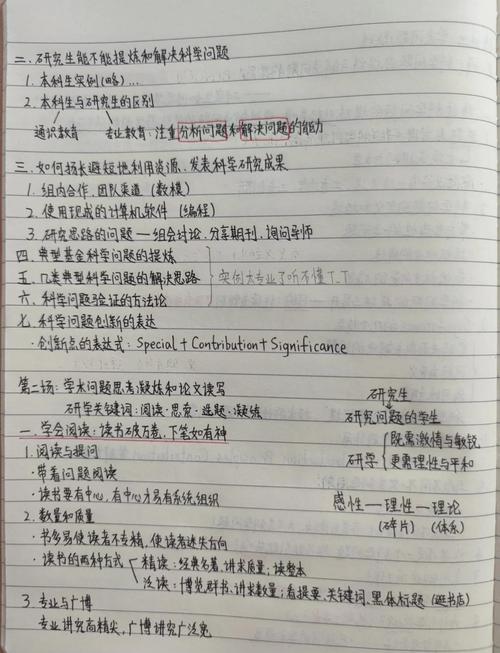 二. 研究生能不能提炼和解决科学问题
1. 本科生实例(略)...
2. 本科生与研究生的区别
通识教育 专业教育: 注重分析问题和解决问题的能力
三. 如何扬长避短地利用资源、发表科学研究成果
1. 组内合作、团队渠道 (数模)
2. 使用现成的计算机软件 (编程)
3. 研究思路的问题—组会讨论、分享期刊、询问导师
四. 典型基金科学问题的提炼
五. 几类典型科学问题的解决思路
实例太专业了听不懂T.T
六. 科学问题验证的方法论
七. 科学问题创新的表达
·创新点的表达式: Special + Contribution + Significance
第二场: 学术问题思考凝炼和论文读写
研学关键词: 阅读·思索·选题·凝练
一. 学会阅读: 读书破万卷, 下笔如有神
1. 阅读与提问
·带着问题阅读
·读书要有中心, 有中心才易有系统组织
2. 数量和质量
·书多易使读者不专精, 使读者迷失方向
·读书的两种方式
精读: 经典名著, 讲求质量; 读整本
泛读: 博览群书, 讲求数量; 看提要、关键词、黑体标题 (逛书店)
3. 专业与广博
专业讲究高精尖, 广博讲究广泛宽
研究生
研究问题的学生
研学
既需激情与敏锐
更需理性与平和
感性—理性—理论
(碎片) (体系)